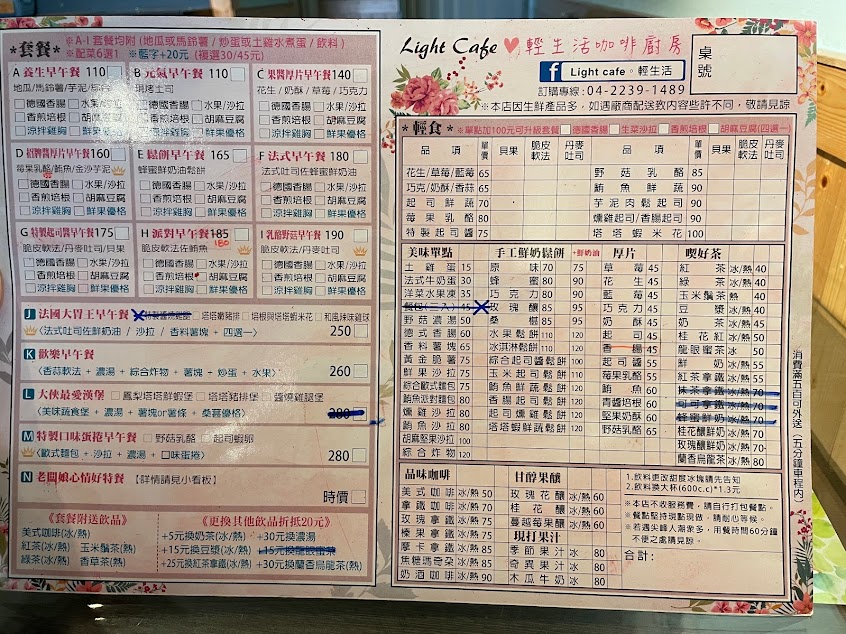 *套餐* ※A-I 套餐均附 (地瓜或馬鈴薯 / 炒蛋或土雞水煮蛋 / 飲料)
※配菜6選1 ※藍字+20元 (複選30/45元)
A 養生早午餐 110
地瓜/馬鈴薯/芋泥/綜合
德國香腸 水果/沙拉
香煎培根 胡麻豆腐
涼拌雞胸 鮮果優格
B 元氣早午餐 110
現烤土司
德國香腸 水果/沙拉
香煎培根 胡麻豆腐
涼拌雞胸 鮮果優格
C 果醬厚片早午餐 140
花生 / 奶酥 / 草莓 / 巧克力
德國香腸 水果/沙拉
香煎培根 胡麻豆腐
涼拌雞胸 鮮果優格
D 招牌醬厚片早午餐 160
莓果乳酪/鮪魚/金沙芋泥
德國香腸 水果/沙拉
香煎培根 胡麻豆腐
涼拌雞胸 鮮果優格
E 鬆餅早午餐 165
蜂蜜鮮奶油鬆餅
德國香腸 水果/沙拉
香煎培根 胡麻豆腐
涼拌雞胸 鮮果優格
F 法式早午餐 180
法式吐司佐蜂蜜鮮奶油
德國香腸 水果/沙拉
香煎培根 胡麻豆腐
涼拌雞胸 鮮果優格
G 特製起司醬早午餐 175
脆皮軟法/丹麥吐司/貝果
德國香腸 水果/沙拉
香煎培根 胡麻豆腐
涼拌雞胸 鮮果優格
H 派對早午餐 185
180
脆皮軟法佐鮪魚
德國香腸 水果/沙拉
香煎培根 胡麻豆腐
涼拌雞胸 鮮果優格
I 乳酪野菇早午餐 190
脆皮軟法/丹麥吐司
德國香腸 水果/沙拉
香煎培根 胡麻豆腐
涼拌雞胸 鮮果優格
J 法國大胃王早午餐 塔塔嫩豬排 培根與塔塔蝦米花 和風辣味雞球
〈法式吐司佐鮮奶油 / 沙拉 / 香料薯塊 + 四選一〉 250
K 歡樂早午餐
〈香蒜軟法 + 濃湯 + 綜合炸物 + 薯塊 + 炒蛋 + 水果〉 260
L 大俠最愛漢堡 鳳梨塔塔鮮蝦堡 塔塔豬排堡 醬燒雞腿堡
〈美味蔬食堡 + 濃湯 + 薯塊or薯條 + 桑葚優格〉 280
M 特製口味蛋捲早午餐 野菇乳酪 起司蝦卵
〈歐式麵包 + 沙拉 + 濃湯 + 口味蛋捲〉 280
N 老闆娘心情好特餐 【詳情請見小看板】
時價
《套餐附送飲品》
美式咖啡(冰/熱)
紅茶(冰/熱) 玉米鬚茶(熱)
綠茶(冰/熱) 香草茶(熱)
《更換其他飲品折抵20元》
+5元換奶茶(冰/熱) +30元換濃湯
+15元換豆漿(冰/熱) +15元換龍眼蜜茶
+25元換紅茶拿鐵(冰/熱) +30元換蘭香烏龍茶(熱)
Light Cafe ♥ 輕生活咖啡廚房
f Light cafe。輕生活
訂購專線：04-2239-1489
※本店因生鮮產品多，如遇廠商配送致內容些許不同，敬請見諒
桌號
*輕食* ※單點加100元可升級套餐 德國香腸 生菜沙拉 香煎培根 胡麻豆腐(四選一)
品項 單價 貝果 脆皮軟法 丹麥吐司 品項 單價 貝果 脆皮軟法 丹麥吐司
花生/草莓/藍莓 65 野菇乳酪 85
巧克/奶酥/香蒜 65 鮪魚鮮蔬 90
起司鮮蔬 70 芋泥肉鬆起司 90
莓果乳酪 80 燻雞起司/香腸起司 90
特製起司醬 75 塔塔蝦米花 100
美味單點
土雞蛋 15
法式牛奶蛋 30
洋菜水果凍 35
餐包(三入) 45
野菇濃湯 50
德式香腸 60
香料薯塊 65
黃金脆薯 75
鮮果沙拉 75
綜合歐式麵包 75
鮪魚派對麵包 80
燻雞沙拉 80
鮪魚沙拉 80
胡麻堅果沙拉 100
綜合炸物 120
手工鮮奶鬆餅 +鮮奶油
原味 70 75
蜂蜜 80 90
巧克力 80 90
玫瑰釀 85 95
桑椹 85 95
水果鬆餅 110 120
冰淇淋鬆餅 110 120
綜合起司醬鬆餅 100
玉米起司鬆餅 110
鮪魚鮮蔬鬆餅 120
香腸起司鬆餅 120
起司燻雞鬆餅 120
塔塔蝦鮮蔬鬆餅 120
厚片
草莓 45
花生 45
藍莓 45
巧克力 45
奶酥 45
起司 45
香腸 45
起司醬 55
莓果乳酪 55
鮪魚 60
青醬培根 60
堅果奶酥 60
野菇乳酪 65
喫好茶
紅茶 冰/熱 40
綠茶 冰/熱 40
玉米鬚茶 熱 40
豆漿 冰/熱 40
奶茶 冰/熱 45
桂花紅 冰/熱 50
龍眼蜜茶 冰 50
鮮奶 冰/熱 55
紅茶拿鐵 冰/熱 55
抹茶拿鐵 冰/熱 70
可可拿鐵 冰/熱 70
蜂蜜鮮奶 冰/熱 70
桂花釀鮮奶 冰/熱 70
玫瑰釀鮮奶 冰/熱 70
蘭香烏龍茶 冰/熱 80
品味咖啡
美式咖啡 冰/熱 50
拿鐵咖啡 冰/熱 70
玫瑰拿鐵 冰/熱 75
榛果拿鐵 冰/熱 75
摩卡拿鐵 冰/熱 85
焦糖瑪奇朵 冰/熱 85
奶酒咖啡 冰/熱 90
甘醇果釀
玫瑰花釀 冰/熱 60
桂花釀 冰/熱 60
蔓越莓果釀 冰/熱 60
現打果汁
季節果汁 冰 80
奇異果汁 冰 80
木瓜牛奶 冰 80
1.飲料更改甜度冰塊請先告知
2.飲料換大杯(600c.c)*1.3元
※本店不收服務費，請自行打包餐點。
※餐點堅持現點現做，請耐心等候。
※若遇尖峰人潮眾多，用餐時間60分鐘
不便之處請見諒。
合計：
消費滿五百可外送 (五分鐘車程內)